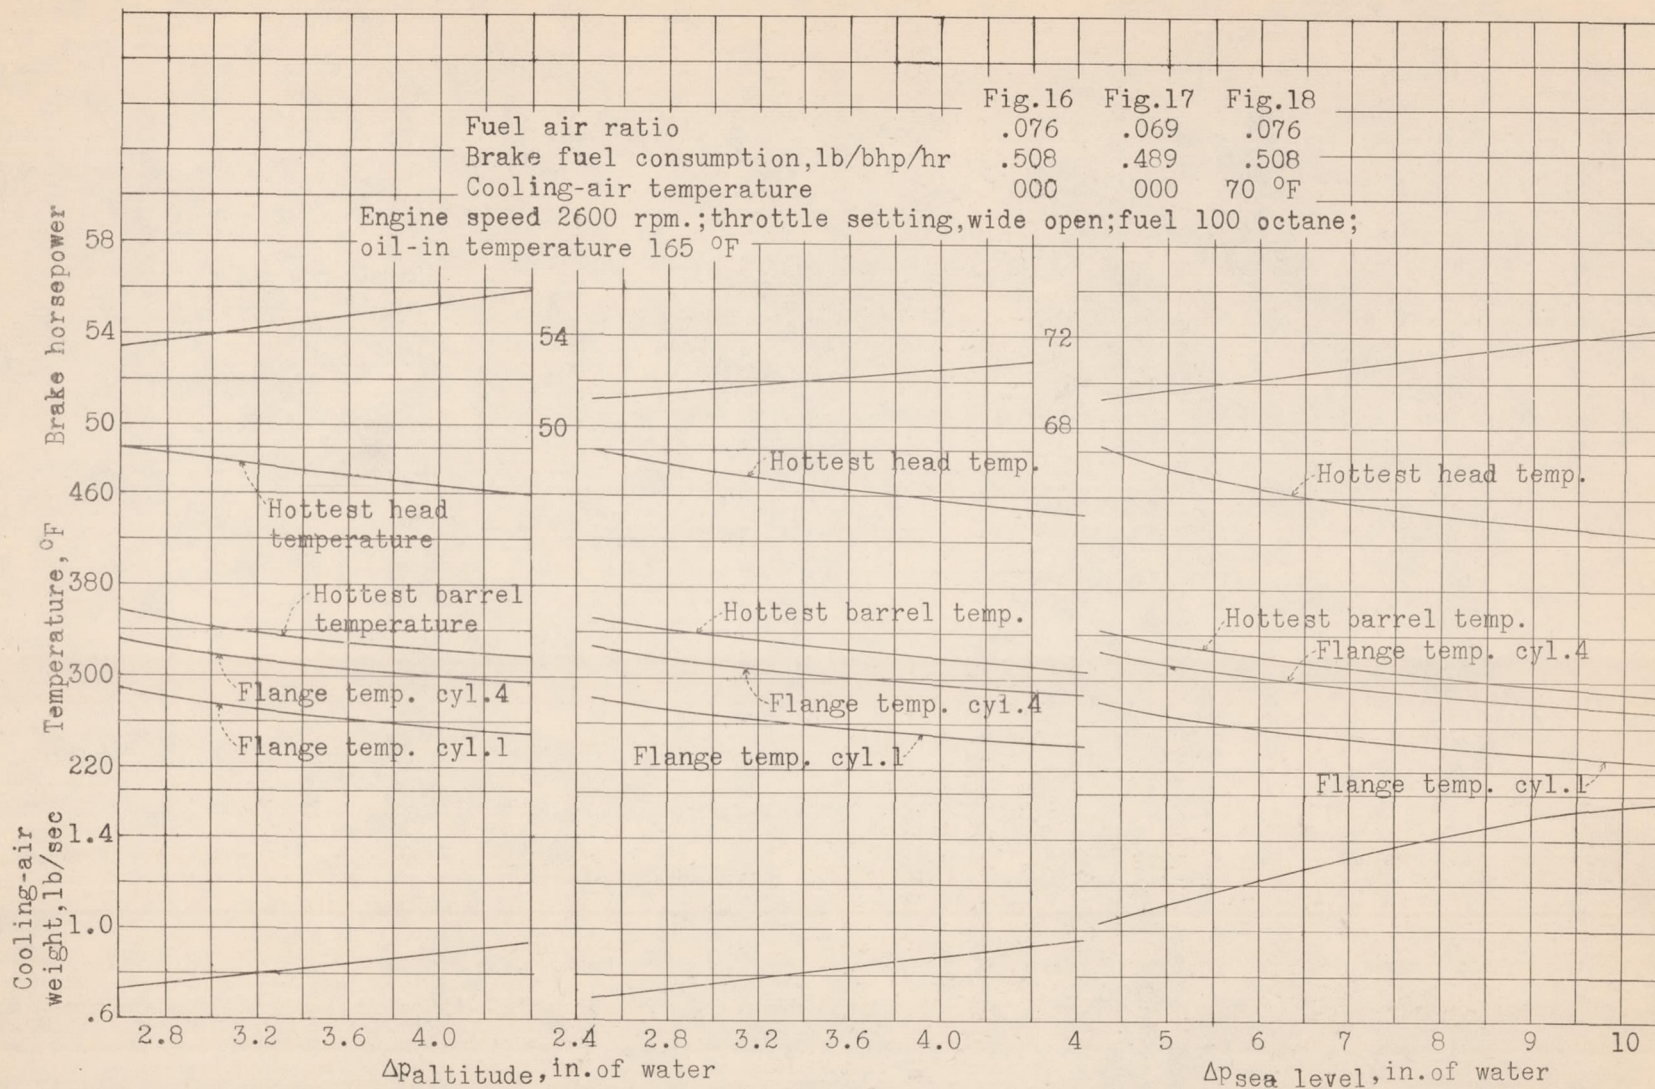 Fig.16 Fig.17 Fig.18
Fuel air ratio .076 .069 .076
Brake fuel consumption,lb/bhp/hr .508 .489 .508
Cooling-air temperature 000 000 70 °F
Engine speed 2600 rpm.;throttle setting,wide open;fuel 100 octane;
oil-in temperature 165 °F
Brake horsepower
58
54
50
54
50
72
68
Temperature, °F
460
380
300
220
Hottest head
temperature
Hottest barrel
temperature
Flange temp. cyl.4
Flange temp. cyl.1
Hottest head temp.
Hottest barrel temp.
Flange temp. cyl.4
Flange temp. cyl.1
Hottest head temp.
Hottest barrel temp.
Flange temp. cyl.4
Flange temp. cyl.1
Cooling-air
weight,lb/sec
1.4
1.0
.6
2.8 3.2 3.6 4.0 2.4 2.8 3.2 3.6 4.0 4 5 6 7 8 9 10
Δpaltitude,in.of water
Δpsea level,in.of water